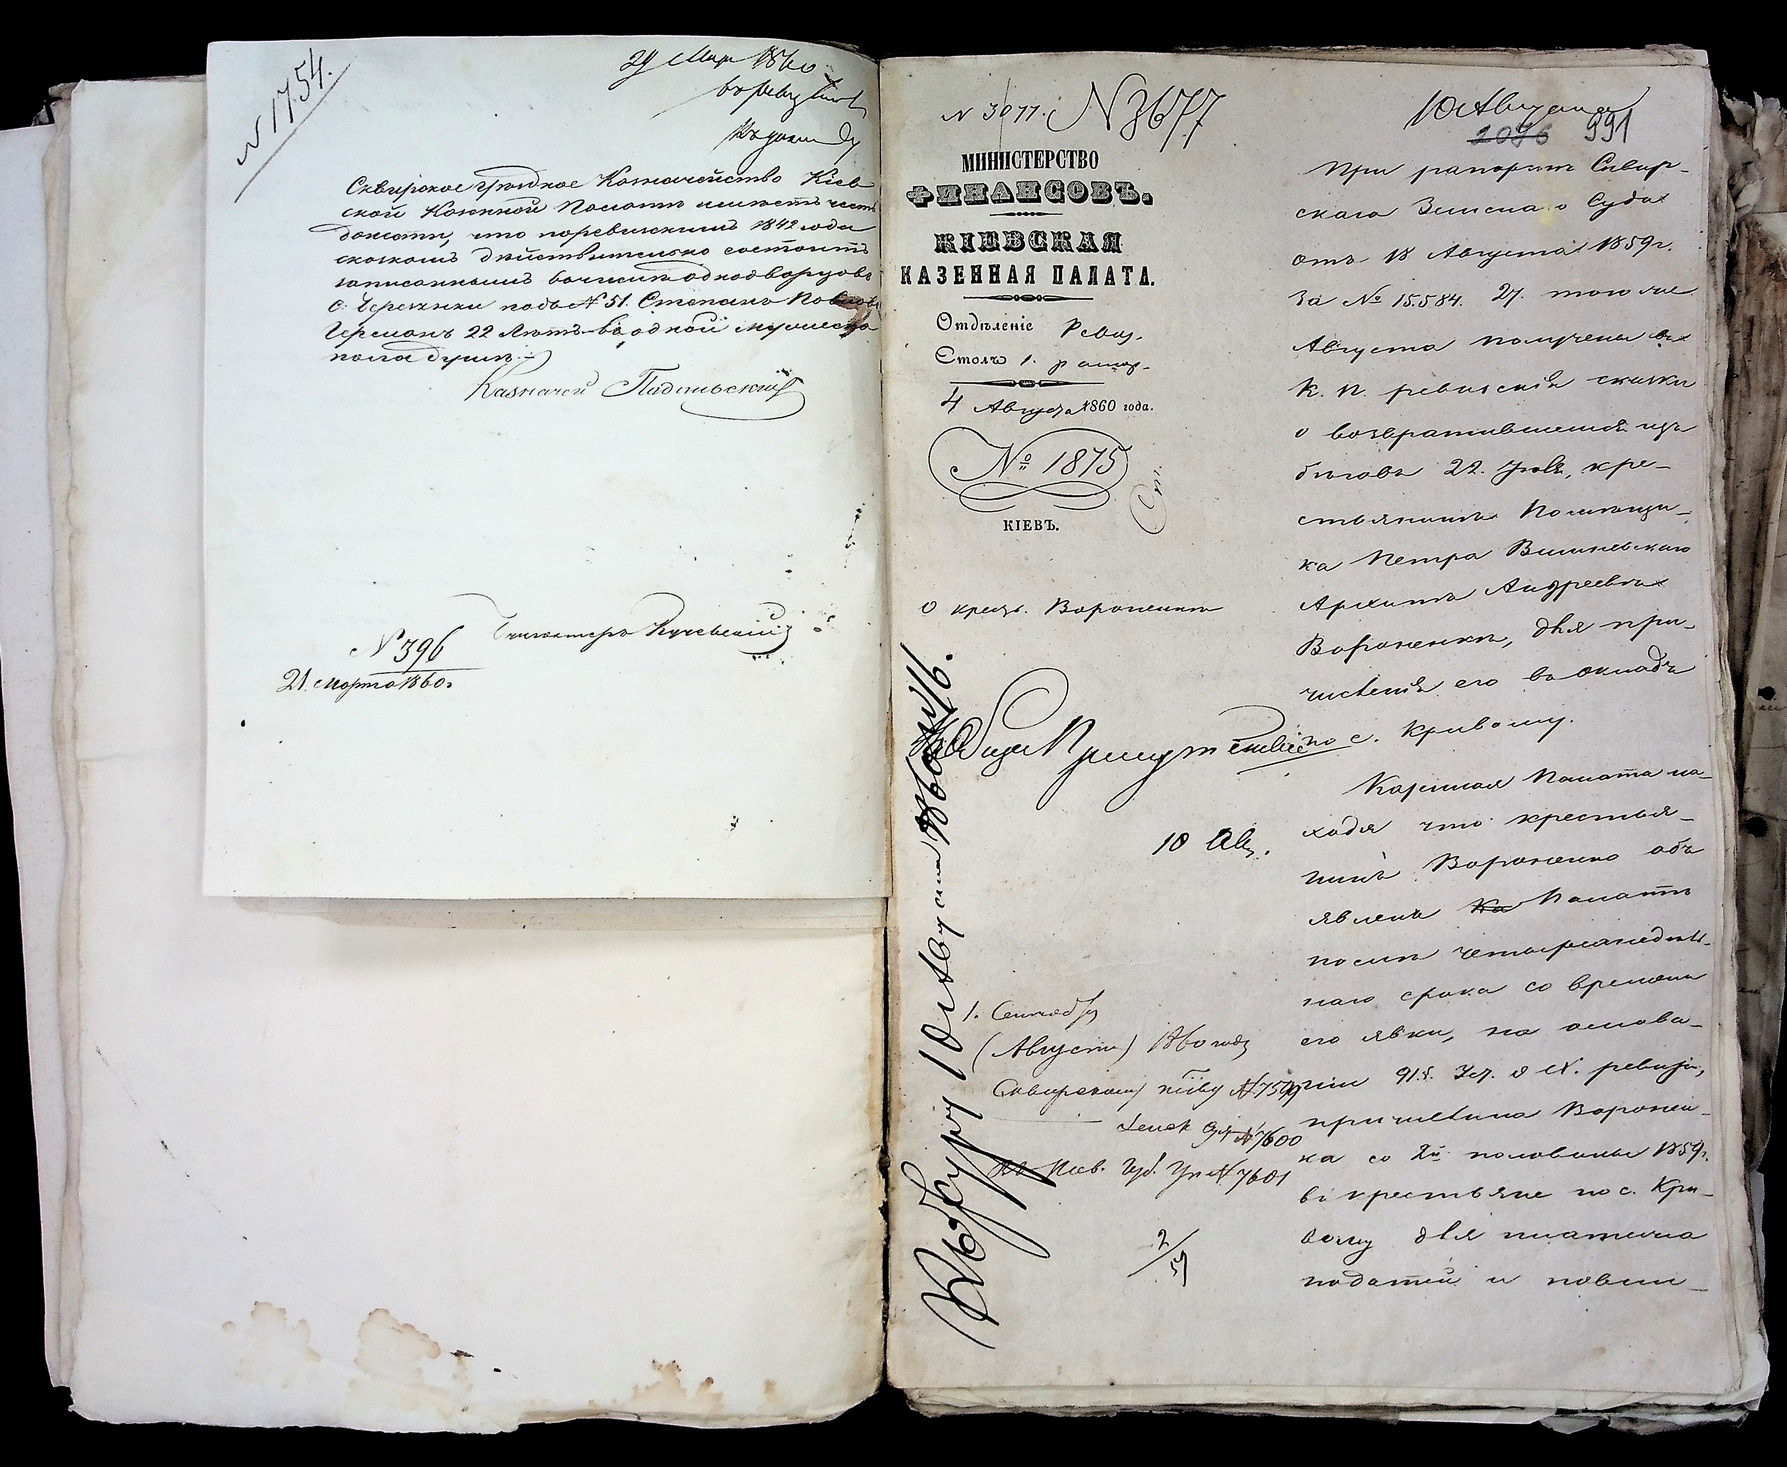 N 1754.
29 Мар 1860
Сквирское уѣздное Казначейство Кіев-
ской Казенной Палатѣ имѣетъ честь
донести, что по ревизскимъ 1842 года
сказкамъ дѣйствительно состоитъ
записаннымъ въ числѣ однодворцовъ
с. Черемхи подъ № 51. Степанъ Павлов
Германъ 22 лѣтъ въ одной мужеска
пола душѣ.
Казначей Подольскій
Бухгалтеръ
N 396
21. марта 1860 г.
N 3077. N 3677
10 Августа
2096 991
МИНИСТЕРСТВО
ФИНАНСОВЪ.
КІЕВСКАЯ
КАЗЕННАЯ ПАЛАТА.
Отдѣленіе Ревиз.
Столъ 1.
4 Августа 1860 года.
№ 1875
КІЕВЪ.
о крест. Вороненкѣ
При рапортѣ Сквир-
скаго Земскаго Суда
отъ 18 Августа 1859 г.
за № 15584. 27. того же
Августа получены въ
К. П. ревизскія сказки
о возвратившемся изъ
бѣговъ 22. Іюля, кре-
стьянинѣ Помѣщи-
ка Петра Вишневскаго
Архипѣ Андреевѣ
Вороненкѣ, для при-
численія его въ окладъ
по с. Кривому.
Казенная Палата на-
ходя что крестья-
нинъ Вороненко объ
явленъ Ка Палатѣ
послѣ четырехнедѣль-
наго срока со времени
его явки, на основа-
ніи 91.§. Уст. о X. ревизіи,
причислила Воронен-
ка со 2й половины 1859 г.
въ крестьяне по с. Кри-
вому для платежа
податей и повин-
10 Авг.
1. Сентября
(Августа) 1860 года
Сквирскому N 7599
N 7600
Въ Кіев. Губ. Пр N 7601
2/59
Къ журн 10 Августа 1860